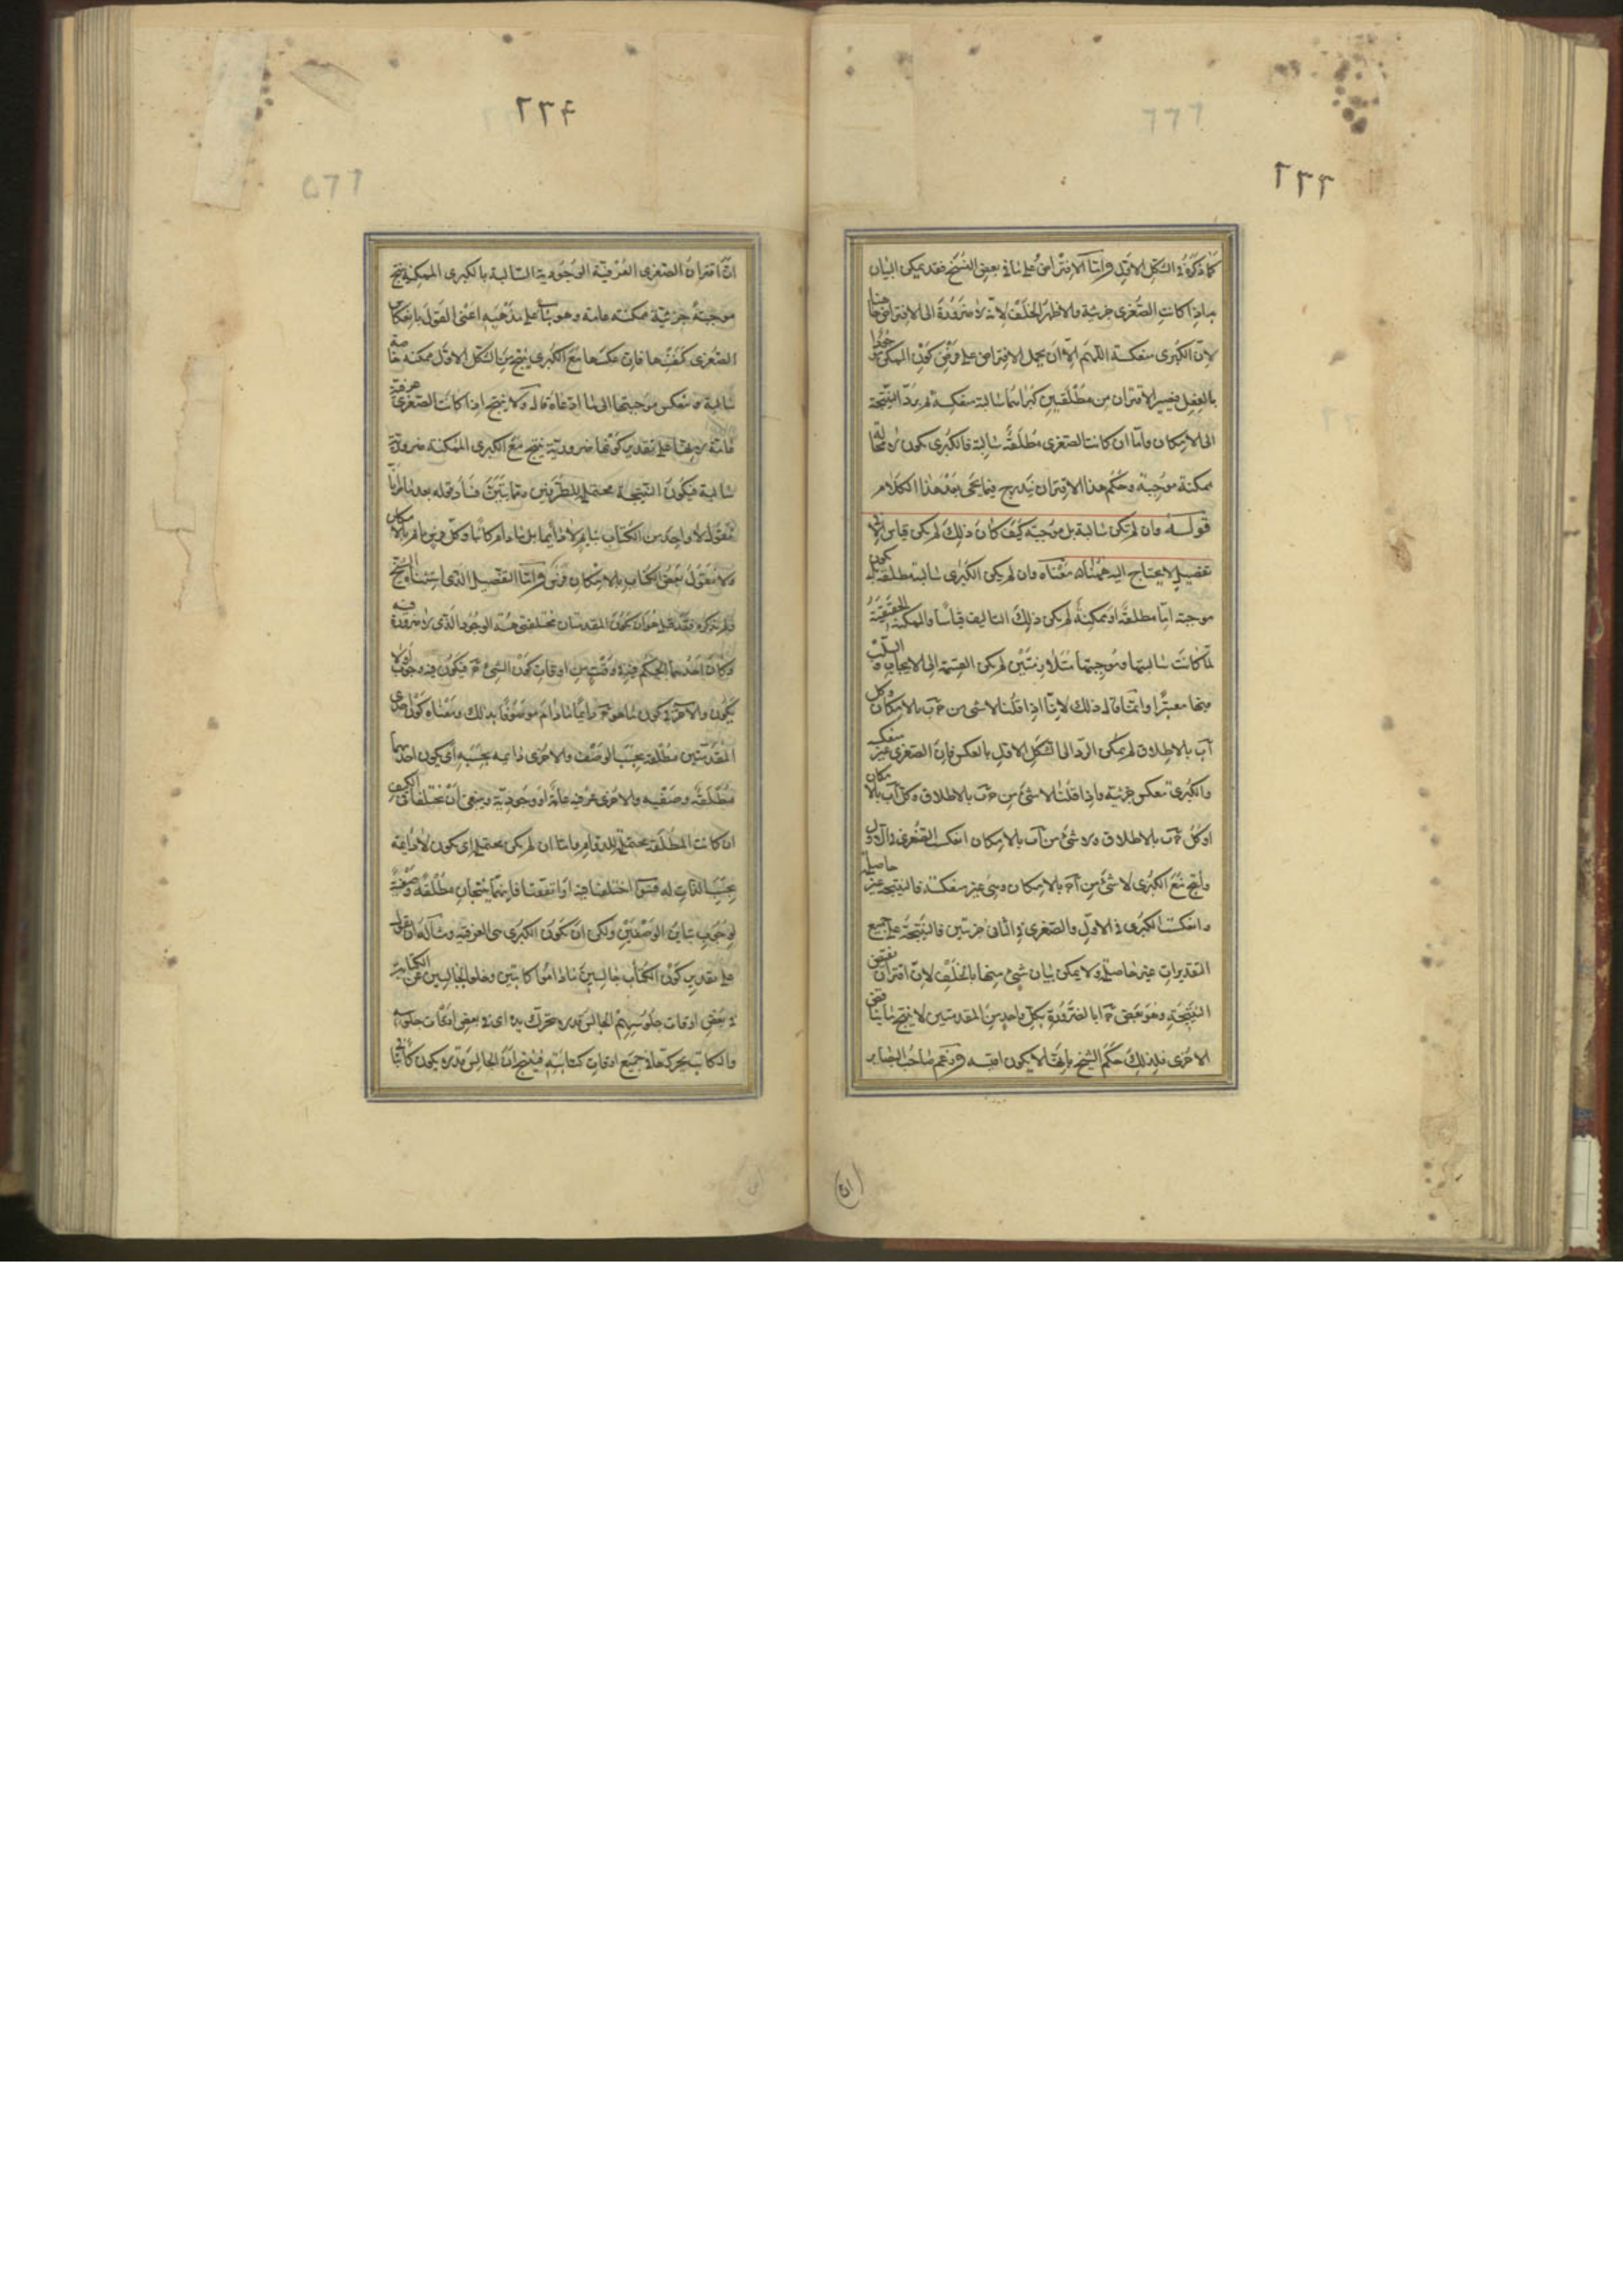 كما ذكره فى الشكل الاول وامّا الافتراض على ما فى بعض النسخ فقد يمكن البيان
به اذا كانت الصغرى جزئية والاظهر الخلف لانه لا ضرورة الى الافتراض هاهنا
لان الكبرى منعكسة اللهم الا ان يحمل الافتراض على فرض كون الممكن موجودا
بالفعل فيصير الاقتران من مطلقتين كبراهما سالبة منعكسة ثم يردّ النتيجة
الى الامكان وامّا ان كانت الصغرى مطلقة سالبة فالكبرى يكون لا محالة
ممكنة موجبة وحكم هذا الاقتران يندرج فيما يجئ بعد هذا الكلام
قوله وان لم تكن سالبة بل موجبة كيف كان ذلك لم يكن قياس الا فى
تفصيل لا يحتاج اليه هاهنا معناه وان لم يكن الكبرى سالبة مطلقة بل يكون
موجبة امّا مطلقة او ممكنة لم يكن ذلك التاليف قياسا والممكنة الحقيقية
لما كانت سالبتها وموجبتها متلازمتين لم يكن القسمة الى الايجاب والسلب
فيها معتبرا وانما قال ذلك لانا اذا قلنا لا شئ من ج ب بالامكان وكل
آ ب بالاطلاق لم يمكن الردّ الى الشكل الاول بالعكس فان الصغرى غير منعكسة
والكبرى تنعكس جزئية واذا قلنا لا شئ من ج ب بالاطلاق وكل آ ب بالامكان
او كل ج ب بالاطلاق ولا شئ من آ ب بالامكان انعكست الصغرى فى الاول
وانتج مع الكبرى لا شئ من آ ج بالامكان وهى غير منعكسة فالنتيجة غير حاصلة
وانعكست الكبرى فى الاول والصغرى فى الثانى جزئيتين فالنتيجة على جميع
التقديرات غير حاصلة ولا يمكن بيان شئ منها بالخلف لان اقتران نقيض
النتيجة وهو بعض ج آ بالضرورة بكل واحد من المقدمتين لا ينتج ما يناقض
الاخرى فلذلك حكم الشيخ بانها لا يكون اقيسة وزعم صاحب البصاير
ان اقتران الصغرى العرفية الوجودية السالبة بالكبرى الممكنة ينتج
موجبة جزئية ممكنة عامة وهو بناء على مذهبه اعنى القول بانعكاس
الصغرى كنفسها فان عكسها مع الكبرى ينتج من الشكل الاول ممكنة خاصة
سالبة وتنعكس موجبتها الى ما ادعاه قال ولا ينتج اذا كانت الصغرى عرفية
عامة لانها على تقدير كونها ضرورية ينتج مع الكبرى الممكنة ضرورية
سالبة فيكون النتيجة محتملة للطرفين
نقول لا واحد من الكتاب بنايم لا دايما بل ما دام كاتبا وكل فرس نايم بالامكان
ولا نقول بعض الكتاب بالامكان فرس وامّا التفصيل الذى استثناه الشيخ
ولم يذكره فقد قيل هو ان يكون المقدمتان مختلفتى جهة الوجود الذى لا ضرورة فيه
وكان احدهما الحكم فيه فى وقت من اوقات كون الشئ ج فيكون فيه وجوب او لا
يكون والاخر فى كون ما هو ج دايما ما دام موصوفا بذلك ومعناه كون احدى
المقدمتين مطلقة بحسب الوصف والاخرى دايمة بحسبه اى يكون احديهما
مطلقة وصفية والاخرى عرفية عامة او وجودية وينبغى ان تختلفا فى الكيف
ان كانت المطلقة محتملة للدوام وامّا ان لم يكن محتملة اى يكون لا دايمة
بحسب الذات له فسواء اختلفتا فيه او اتفقتا فانهما ينتجان مطلقة وصفية
لوجوب تباين الوصفين ولكن ان تكون الكبرى هى العرفية ومثاله ان نقول
على تقدير كون الكتاب جالسين ما داموا كاتبين وخلو الجالسين عن الكتابة
فى بعض اوقات جلوسهم الجالس قد لا يحرك يده اى فى بعض اوقات جلوسه
والكاتب يحركها فى جميع اوقات كتابته فينتج ان الجالس قد لا يكون كاتبا
٢٢٤
٢٢٣